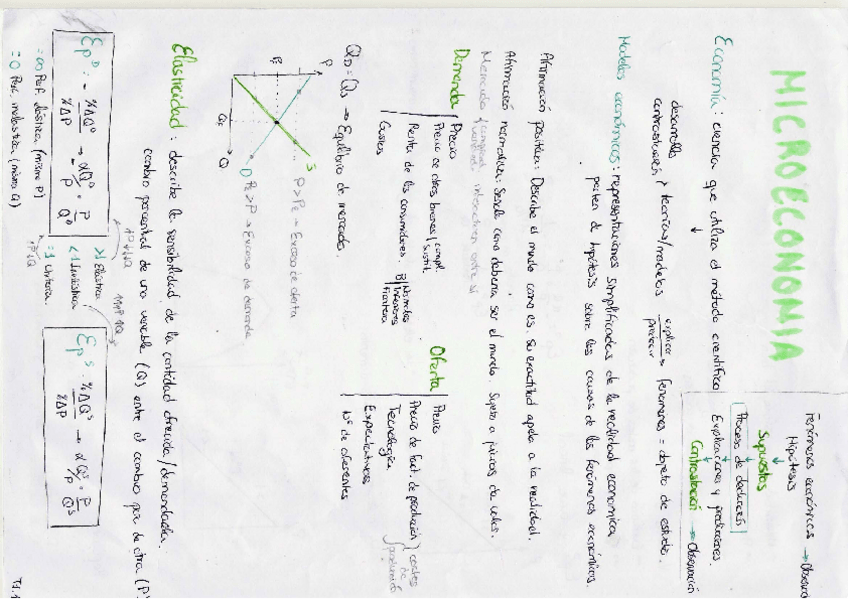 MICROECONOMIA
Fenómenos económicos → Observa
Hipótesis
Supuestos
Proceso de deducción
Explicaciones y predicciones
Contrastación → Observación
Economía: ciencia que utiliza el método científico
desarrolla
contrastación y teorías/modelos explicar predecir fenómenos = objeto de estudio.
Modelos económicos: representaciones simplificadas de la realidad económica
parten de hipótesis sobre las causas de los fenómenos económicos
Afirmación positiva: Describe el mundo como es. Su exactitud apela a la realidad.
Afirmación normativa: Señala como debería ser el mundo. Sujeto a juicios de valor.
Mercado interactúan entre sí
Demanda
Precio
Precio de otros bienes compl. sustit.
Renta de los consumidores. B Normales Inferiores Frontera
Gustos
Oferta
Precio
Precio de fact. de producción
Tecnología
costes de producción
Expectativas
Nº de oferentes
QD = QS → Equilibrio de mercado.
P
PE
QE
Q
S
D
P > PE → Exceso de oferta
PE > P → Exceso de demanda
Elasticidad: describe la sensibilidad de la cantidad ofrecida/demandada.
cambio porcentual de una variable (Q) entre el cambio por. de otra (P)
EpD: - %ΔQD / %ΔP → - dQD/P · P/QD
>1 Elástica
<1 Inelástica
=1 Unitaria.
EpS: %ΔQS / %ΔP → dQS/P · P/QS
= ∞ Perf. elástica (misma P)
= 0 Perf. inelástica (misma Q)
T1.1